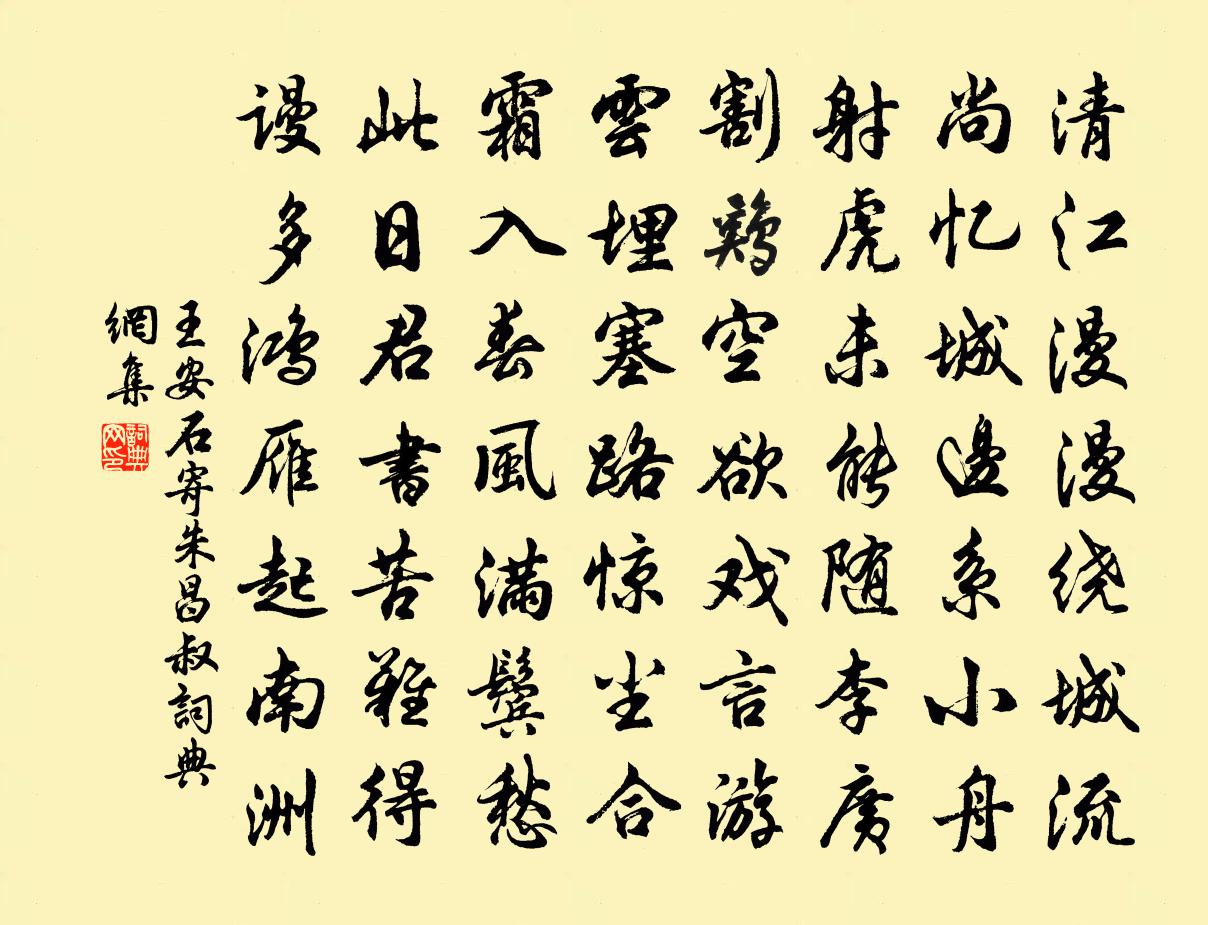 清江漫漫绕城流
尚忆城邊系小舟
射虎未能随李廣
割鷄空欲戏言游
雲埋塞路惊尘合
霜入春風满鬓愁
此日君書苦難得
谩多鸿雁起南洲
王安石寄朱昌叔詞典
網集
詞典
网印